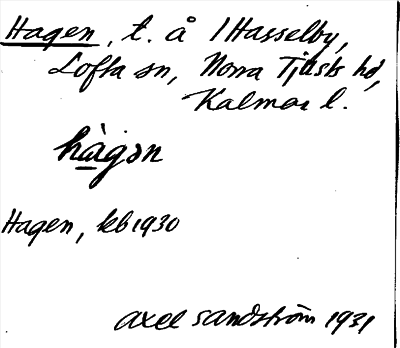 Hagen, t. å 1 Hasselby,
Lofta sn, Norra Tjusts hd,
Kalmar l.
hàgən
Hagen, kb 1930
Axel Sandström 1931